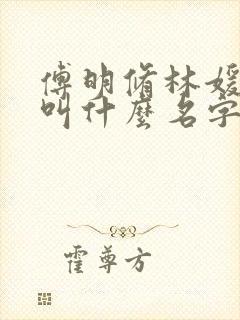 傅明脩林媛
叫什麼名字
霍尊方